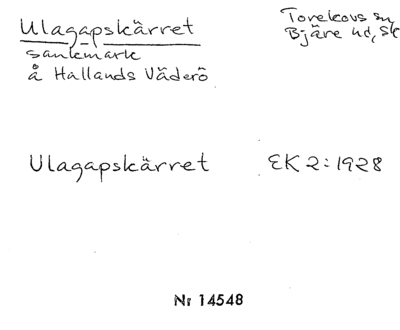 Ulagapskärret
Torekovs sn,
Bjäre hd, Sk
sankmark
å Hallands Väderö
Ulagapskärret EK 2:1928
Nr 14548